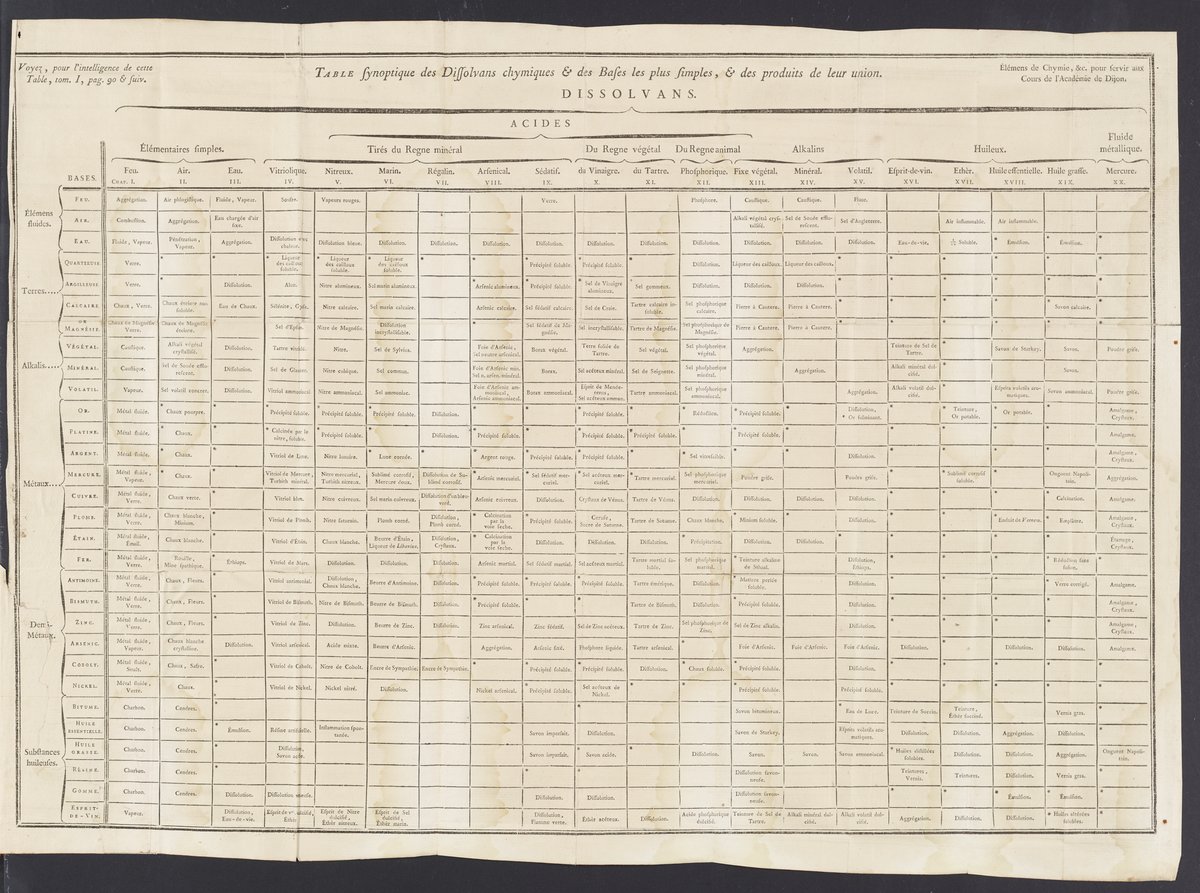 Voyez, pour l'intelligence de cette
Table, tom. I, pag. 90 & suiv.
TABLE synoptique des Dissolvans chymiques & des Bases les plus simples, & des produits de leur union.
Élémens de Chymie, &c. pour servir aux
Cours de l'Académie de Dijon.
DISSOLVANS.
ACIDES
Élémentaires simples.
Tirés du Regne minéral
Du Regne végétal
Du Regne animal
Alkalins
Huileux.
Fluide
métallique.
BASES.
Feu. Air. Eau. Vitriolique. Nitreux. Marin. Régalin. Arsenical. Sédatif. du Vinaigre. du Tartre. Phosphorique. Fixe végétal. Minéral. Volatil. Esprit-de-vin. Ether. Huile essentielle. Huile grasse. Mercure.
CHAP. I. II. III. IV. V. VI. VII. VIII. IX. X. XI. XII. XIII. XIV. XV. XVI. XVII. XVIII. XIX. XX.
Élémens
fluides.
FEU. Aggrégation. Air phlogistique. Fluide, Vapeur. Soufre. Vapeurs rouges. Verre. Phosphore. Caustique. Caustique. Fluor.
AIR. Combustion. Aggrégation. Eau chargée d'air fixe. Alkali végétal crystallisé. Sel de Soude efflorescent. Sel d'Angleterre. Air inflammable. Air inflammable.
EAU. Fluide, Vapeur. Pénétration, Vapeur. Aggrégation. Dissolution avec chaleur. Dissolution bleue. Dissolution. Dissolution. Dissolution. Dissolution. Dissolution. Dissolution. Dissolution. Dissolution. Dissolution. Dissolution. Eau-de-vie. Soluble. * Émulsion. * Émulsion.
Terres....
QUARTZEUSE. Verre. * Liqueur des cailloux soluble. * Liqueur des cailloux soluble. * Liqueur des cailloux soluble. * Précipité soluble. * Précipité soluble. Dissolution. Liqueur des cailloux. Liqueur des cailloux.
ARGILLEUSE. Verre. Dissolution. Alun. Nitre alumineux. Sel marin alumineux. * Arsenic alumineux. * Précipité soluble. * Sel de Vinaigre alumineux. * Sel gommeux. Dissolution. Dissolution. Dissolution.
CALCAIRE. Chaux, Verre. Chaux éteinte non soluble. Eau de Chaux. Sélénite, Gyps. Nitre calcaire. Sel marin calcaire. Arsenic calcaire. Sel sédatif calcaire. Sel de Craie. Tartre calcaire insoluble. Sel phosphorique calcaire. Pierre à Cautere. Pierre à Cautere. Savon calcaire.
OU
MAGNÉSIE. Chaux de Magnésie, Verre. Chaux de Magnésie éteinte. Sel d'Epsom. Nitre de Magnésie. Dissolution incrystallisable. Sel sédatif de Magnésie. Sel incrystallisable. Tartre de Magnésie. Sel phosphorique de Magnésie. Pierre à Cautere. Pierre à Cautere.
Alkalis....
VÉGÉTAL. Caustique. Alkali végétal crystallisé. Dissolution. Tartre vitriolé. Nitre. Sel de Sylvius. Foie d'Arsenic, sel neutre arsenical. Borax végétal. Terre foliée de Tartre. Sel végétal. Sel phosphorique végétal. Aggrégation. Teinture de Sel de Tartre. Savon de Starkey. Savon. Poudre grise.
MINÉRAL. Caustique. Sel de Soude efflorescent. Dissolution. Sel de Glauber. Nitre cubique. Sel commun. Foie d'Arsenic min. Sel n. arsén. minéral. Borax. Sel acéteux minéral. Sel de Seignette. Sel phosphorique minéral. Aggrégation. Alkali minéral dulcifié. Savon.
VOLATIL. Vapeur. Sel volatil concret. Dissolution. Vitriol ammoniacal. Nitre ammoniacal. Sel ammoniac. Foie d'Arsenic ammoniacal, Arsenic ammoniacal. Borax ammoniacal. Esprit de Menderérus, Sel acéteux ammon. Tartre ammoniacal. Sel phosphorique ammoniacal. Aggrégation. Alkali volatil dulcifié. Esprits volatils aromatiques. Savon ammoniacal. Poudre grise.
Métaux....
OR. Métal fluide. * Chaux pourpre. * Précipité soluble. * Précipité soluble. * Précipité soluble. Dissolution. * Précipité soluble. * Réduction. * Précipité soluble. Dissolution, * Or fulminant. * Teinture, Or potable. * Or potable. Amalgame, Crystaux.
PLATINE. Métal fluide. * Chaux. * Calcinée par le nitre, soluble. * Précipité soluble. * Dissolution. Dissolution. * Précipité soluble. * Précipité soluble. * Précipité soluble. * Précipité soluble. Dissolution. Amalgame.
ARGENT. Métal fluide. * Chaux. Vitriol de Lune. Nitre lunaire. * Lune cornée. * Argent rouge. * Précipité soluble. * Précipité soluble. * Sel vitrescible. Dissolution. Amalgame, Crystaux.
MERCURE. Métal fluide, Vapeur. Chaux. Vitriol de Mercure, Turbith minéral. Nitre mercuriel, Turbith nitreux. Sublimé corrosif, Mercure doux. Dissolution de Sublimé corrosif. Arsenic mercuriel. * Sel sédatif mercuriel. * Sel acéteux mercuriel. * Tartre mercuriel. * Sel phosphorique mercuriel. Poudre grise. Poudre grise. * Sublimé corrosif soluble. Onguent Napolitain. Aggrégation.
CUIVRE. Métal fluide, Verre. Chaux verte. Vitriol bleu. Nitre cuivreux. Sel marin cuivreux. Dissolution d'un bleu-verd. Arsenic cuivreux. Dissolution. Crystaux de Vénus. Tartre de Vénus. Dissolution. Dissolution. Dissolution. Dissolution. * Calcination. Amalgame.
PLOMB. Métal fluide, Verre. Chaux blanche, Minium. Vitriol de Plomb. Nitre saturnin. Plomb corné. Dissolution, Plomb corné. * Calcination par la voie seche. * Précipité soluble. Céruse, Sucre de Saturne. Tartre de Saturne. Chaux blanche. * Minium soluble. Dissolution. Enduit de Verreau. * Emplâtre. Amalgame, Crystaux.
ÉTAIN. Métal fluide, Émail. Chaux blanche. Vitriol d'Étain. Chaux blanche. Beurre d'Étain, Liqueur de Libavius. Dissolution, Crystaux. * Calcination par la voie seche. Dissolution. Dissolution. Dissolution. * Précipitation. Dissolution. Dissolution. Étamage, Crystaux.
FER. Métal fluide, Verre. Rouille, Mine spathique. Éthiops. Vitriol de Mars. Dissolution. Dissolution. Dissolution. Arsenic martial. Sel sédatif martial. Sel acéteux martial. Tartre martial soluble. Sel phosphorique martial. * Teinture alkaline de Sthaal. Dissolution, Éthiops. * Réduction sans fusion.
Demi-
Métaux.
ANTIMOINE. Métal fluide, Verre. Chaux, Fleurs. Vitriol antimonial. Dissolution, Chaux blanche. Beurre d'Antimoine. Dissolution. * Précipité soluble. * Précipité soluble. * Précipité soluble. Tartre émétique. Dissolution. * Matiere perlée soluble. Dissolution. Verre corrigé. Amalgame.
BISMUTH. Métal fluide, Verre. Chaux, Fleurs. Vitriol de Bismuth. Nitre de Bismuth. Beurre de Bismuth. Dissolution. * Précipité soluble. * Tartre de Bismuth. Dissolution. * Précipité soluble. Dissolution. Amalgame, Crystaux.
ZINC. Métal fluide, Verre. Chaux, Fleurs. Vitriol de Zinc. Dissolution. Beurre de Zinc. Dissolution. Zinc arsenical. Zinc sédatif. Sel de Zinc acéteux. Tartre de Zinc. Sel phosphorique de Zinc. Sel de Zinc alkalin. Dissolution. Amalgame, Crystaux.
ARSENIC. Métal fluide, Vapeur. Chaux blanche crystalline. Dissolution. Vitriol arsenical. Acide mixte. Beurre d'Arsenic. Aggrégation. Arsenic fixé. Phosphore liquide. Tartre arsenical. Foie d'Arsenic. Foie d'Arsenic. Foie d'Arsenic. Dissolution. Dissolution. Dissolution. Amalgame.
COBOLT. Métal fluide, Smalt. Chaux, Safre. Vitriol de Cobolt. Nitre de Cobolt. Encre de Sympathie. Encre de Sympathie. * Précipité soluble. * Précipité soluble. Dissolution. * Chaux soluble. * Précipité soluble. Dissolution.
NICKEL. Métal fluide, Verre. Chaux. Vitriol de Nickel. Nickel nitré. Dissolution. Nickel arsenical. * Précipité soluble. Sel acéteux de Nickel. * Précipité soluble. Précipité soluble.
Substances
huileuses.
BITUME. Charbon. Cendres. Savon bitumineux. * Eau de Luce. Teinture de Succin. Teinture, Éther succiné. Vernis gras.
HUILE
ESSENTIELLE. Charbon. Cendres. Émulsion. Résine artificielle. Inflammation spontanée. Savon imparfait. Dissolution. Savon de Starkey. Esprits volatils aromatiques. Dissolution. Dissolution. Aggrégation. Dissolution.
HUILE
GRASSE. Charbon. Cendres. Dissolution, Savon acide. Savon imparfait. * Savon acide. Dissolution. Savon. Savon. Savon ammoniacal. * Huiles distillées solubles. Dissolution. Dissolution. Aggrégation. Onguent Napolitain.
RÉSINE. Charbon. Cendres. Dissolution savonneuse. Teintures, Vernis. Teintures. Dissolution. Vernis gras.
GOMME. Charbon. Cendres. Dissolution. Dissolution Dissolution. Dissolution. Dissolution savonneuse. * Émulsion. * Émulsion.
ESPRIT-
DE-VIN. Vapeur. Dissolution, Eau-de-vie. Éther Esprit de Nitre dulcifié, Éther nitreux. Esprit de Sel dulcifié, Éther marin. Dissolution, Flamme verte. Éther acéteux. Dissolution. Acide phosphorique dulcifié. Teinture de Sel de Tartre. Alkali minéral dulcifié. Alkali volatil dulcifié. Aggrégation. Dissolution. Dissolution. * Huiles altérées solubles.